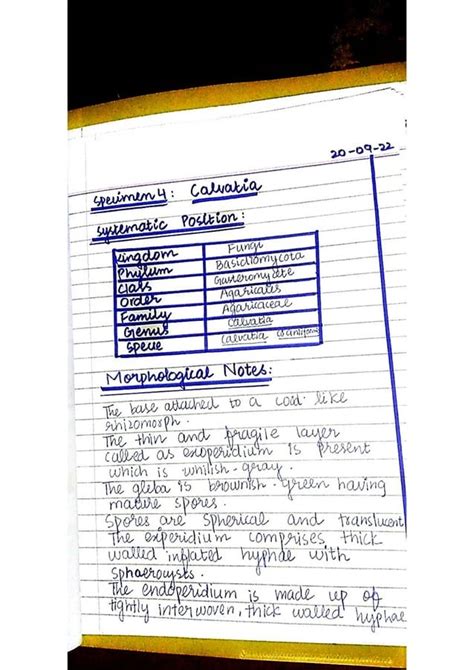 20-09-22
Specimen 4: Calvatia
Systematic Position:
Kingdom Fungi
Phylum Basidiomycota
Class Gasteromycete
Order Agaricales
Family Agaricaceae
Genus Calvatia
Specie Calvatia
Morphological Notes:
The base attached to a cord like
rhizomorph.
The thin and fragile layer
called as exoperidium is present
which is whitish-gray.
The gleba is brownish-green having
mature spores.
Spores are spherical and translucent
The experidium comprises thick
walled inflated hyphae with
sphaerocysts.
The endoperidium is made up of
tightly interwoven, thick walled hyphae